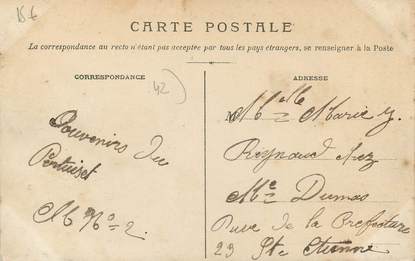 15 €
CARTE POSTALE
La correspondance au recto n'étant pas acceptée par tous les pays étrangers, se renseigner à la Poste
CORRESPONDANCE
42
Souvenirs du
Pertuiset
M No 2.
ADRESSE
M Melle Marie J.
Reynaud chez
Me Dumas
Rue de la Prefecture
23 Ste Etienne